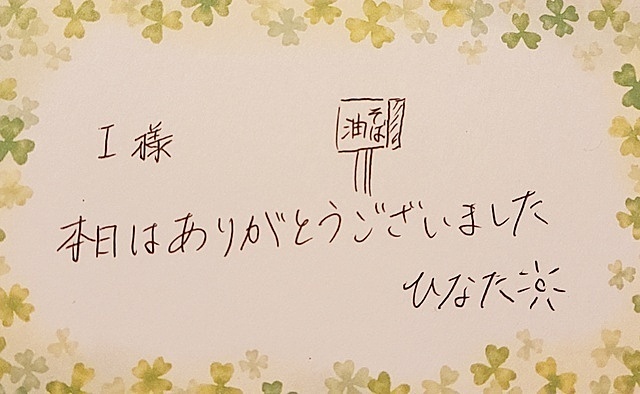 I様
油そば
本日はありがとうございました
ひなた